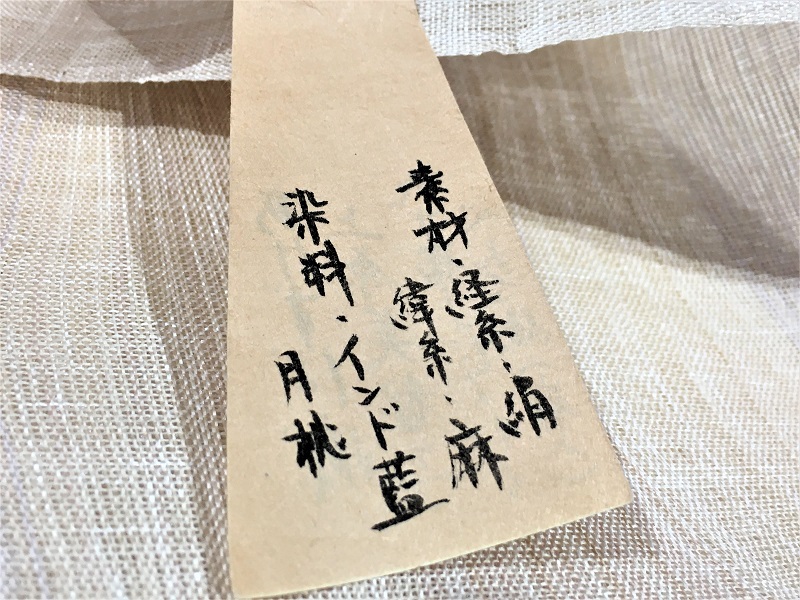 素材・経糸・絹
緯糸・麻
染料・インド藍
月桃